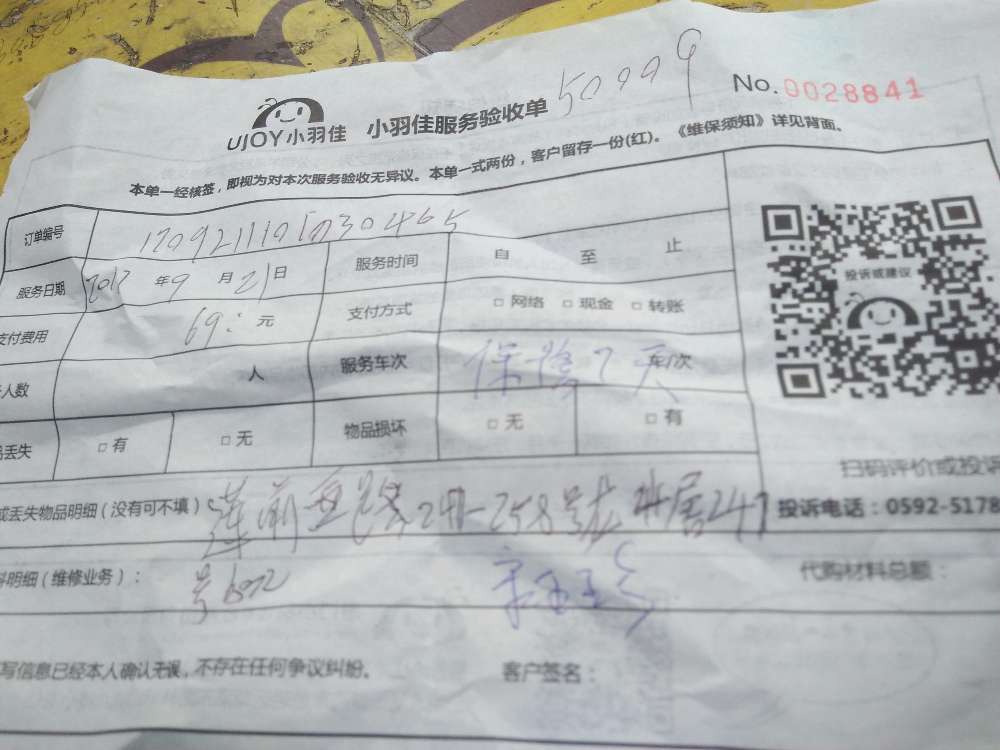 UJOY小羽佳 小羽佳服务验收单 50999 No.0028841
本单一经核签，即视为对本次服务验收无异议。本单一式两份，客户留存一份(红)。《维保须知》详见背面。
订单编号
服务日期 2017 年 9 月 21 日 服务时间 自 至 止
支付费用 69: 元 支付方式 □ 网络 □ 现金 □ 转账
人数 人 服务车次 保障7天 车/次
丢失 □ 有 □ 无 物品损坏 □ 无 □ 有
投诉或建议
扫码评价或投诉
或丢失物品明细（没有可不填） 莲前西路241-258号 247
投诉电话：0592-5178
料明细（维修业务）： 号602
代购材料总额：
写信息已经本人确认无误，不存在任何争议纠纷。 客户签名：